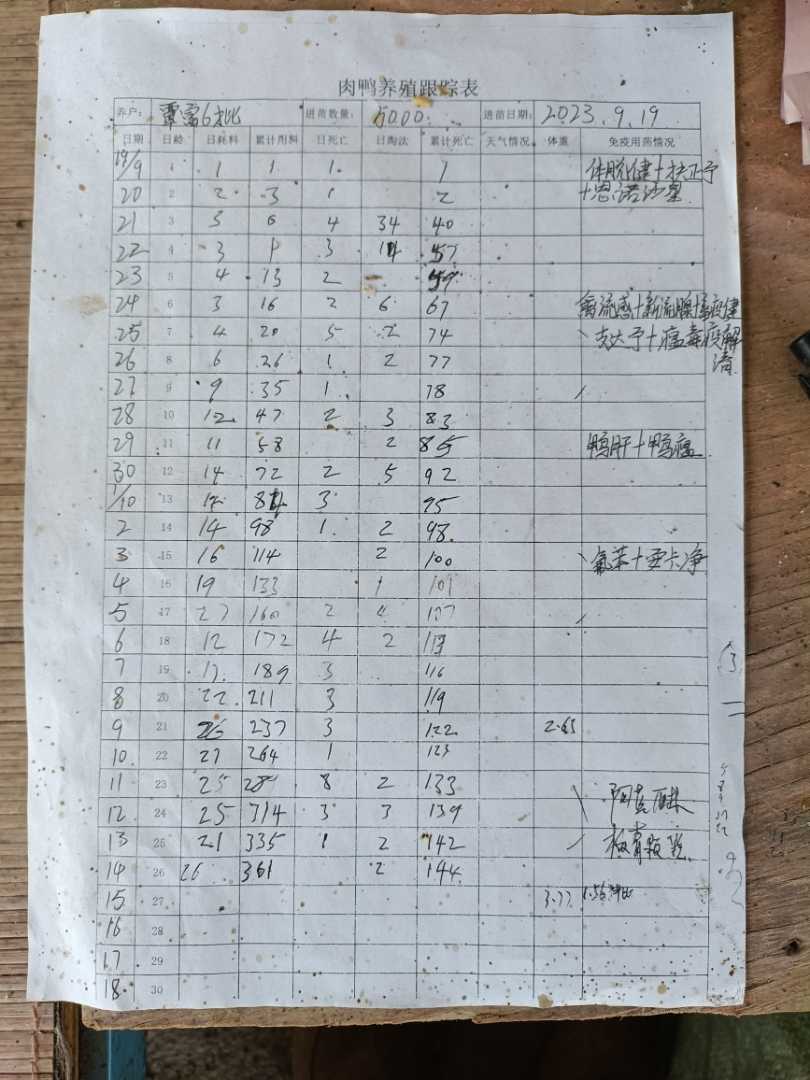 肉鸭养殖跟踪表
养户: 6批 进苗数量: 5000. 进苗日期: 2023.9.19
日期 日龄 日耗料 累计用料 日死亡 日淘汰 累计死亡 天气情况 体重 免疫用药情况
19/9 1 1 1 1 1 健+扶正
20 2 2 3 1 2 +恩诺沙星
21 3 3 6 4 34 40
22 4 3 9 3 14 57
23 5 4 13 2 59
24 6 3 16 2 6 67 禽流感+新流腺+
25 7 4 20 5 2 74 +瘟毒
26 8 6 26 1 2 77 清
27 9 9 35 1 78
28 10 12 47 2 3 83
29 11 11 58 2 85 鸭肝+鸭瘟
30 12 14 72 2 5 92
1/10 13 12 84 3 95
2 14 14 98 1 2 98
3 15 16 114 2 100 氟苯+
4 16 19 133 1 101
5 17 27 160 2 4 107
6 18 12 172 4 2 113
7 19 17 189 3 116
8 20 22 211 3 119
9 21 26 237 3 122 2.65
10 22 27 264 1 123
11 23 25 289 8 2 133
12 24 25 314 3 3 139
13 25 21 335 1 2 142 板青颗粒
14 26 26 361 2 144
15 27 3.77 1.56
16 28
17 29
18 30